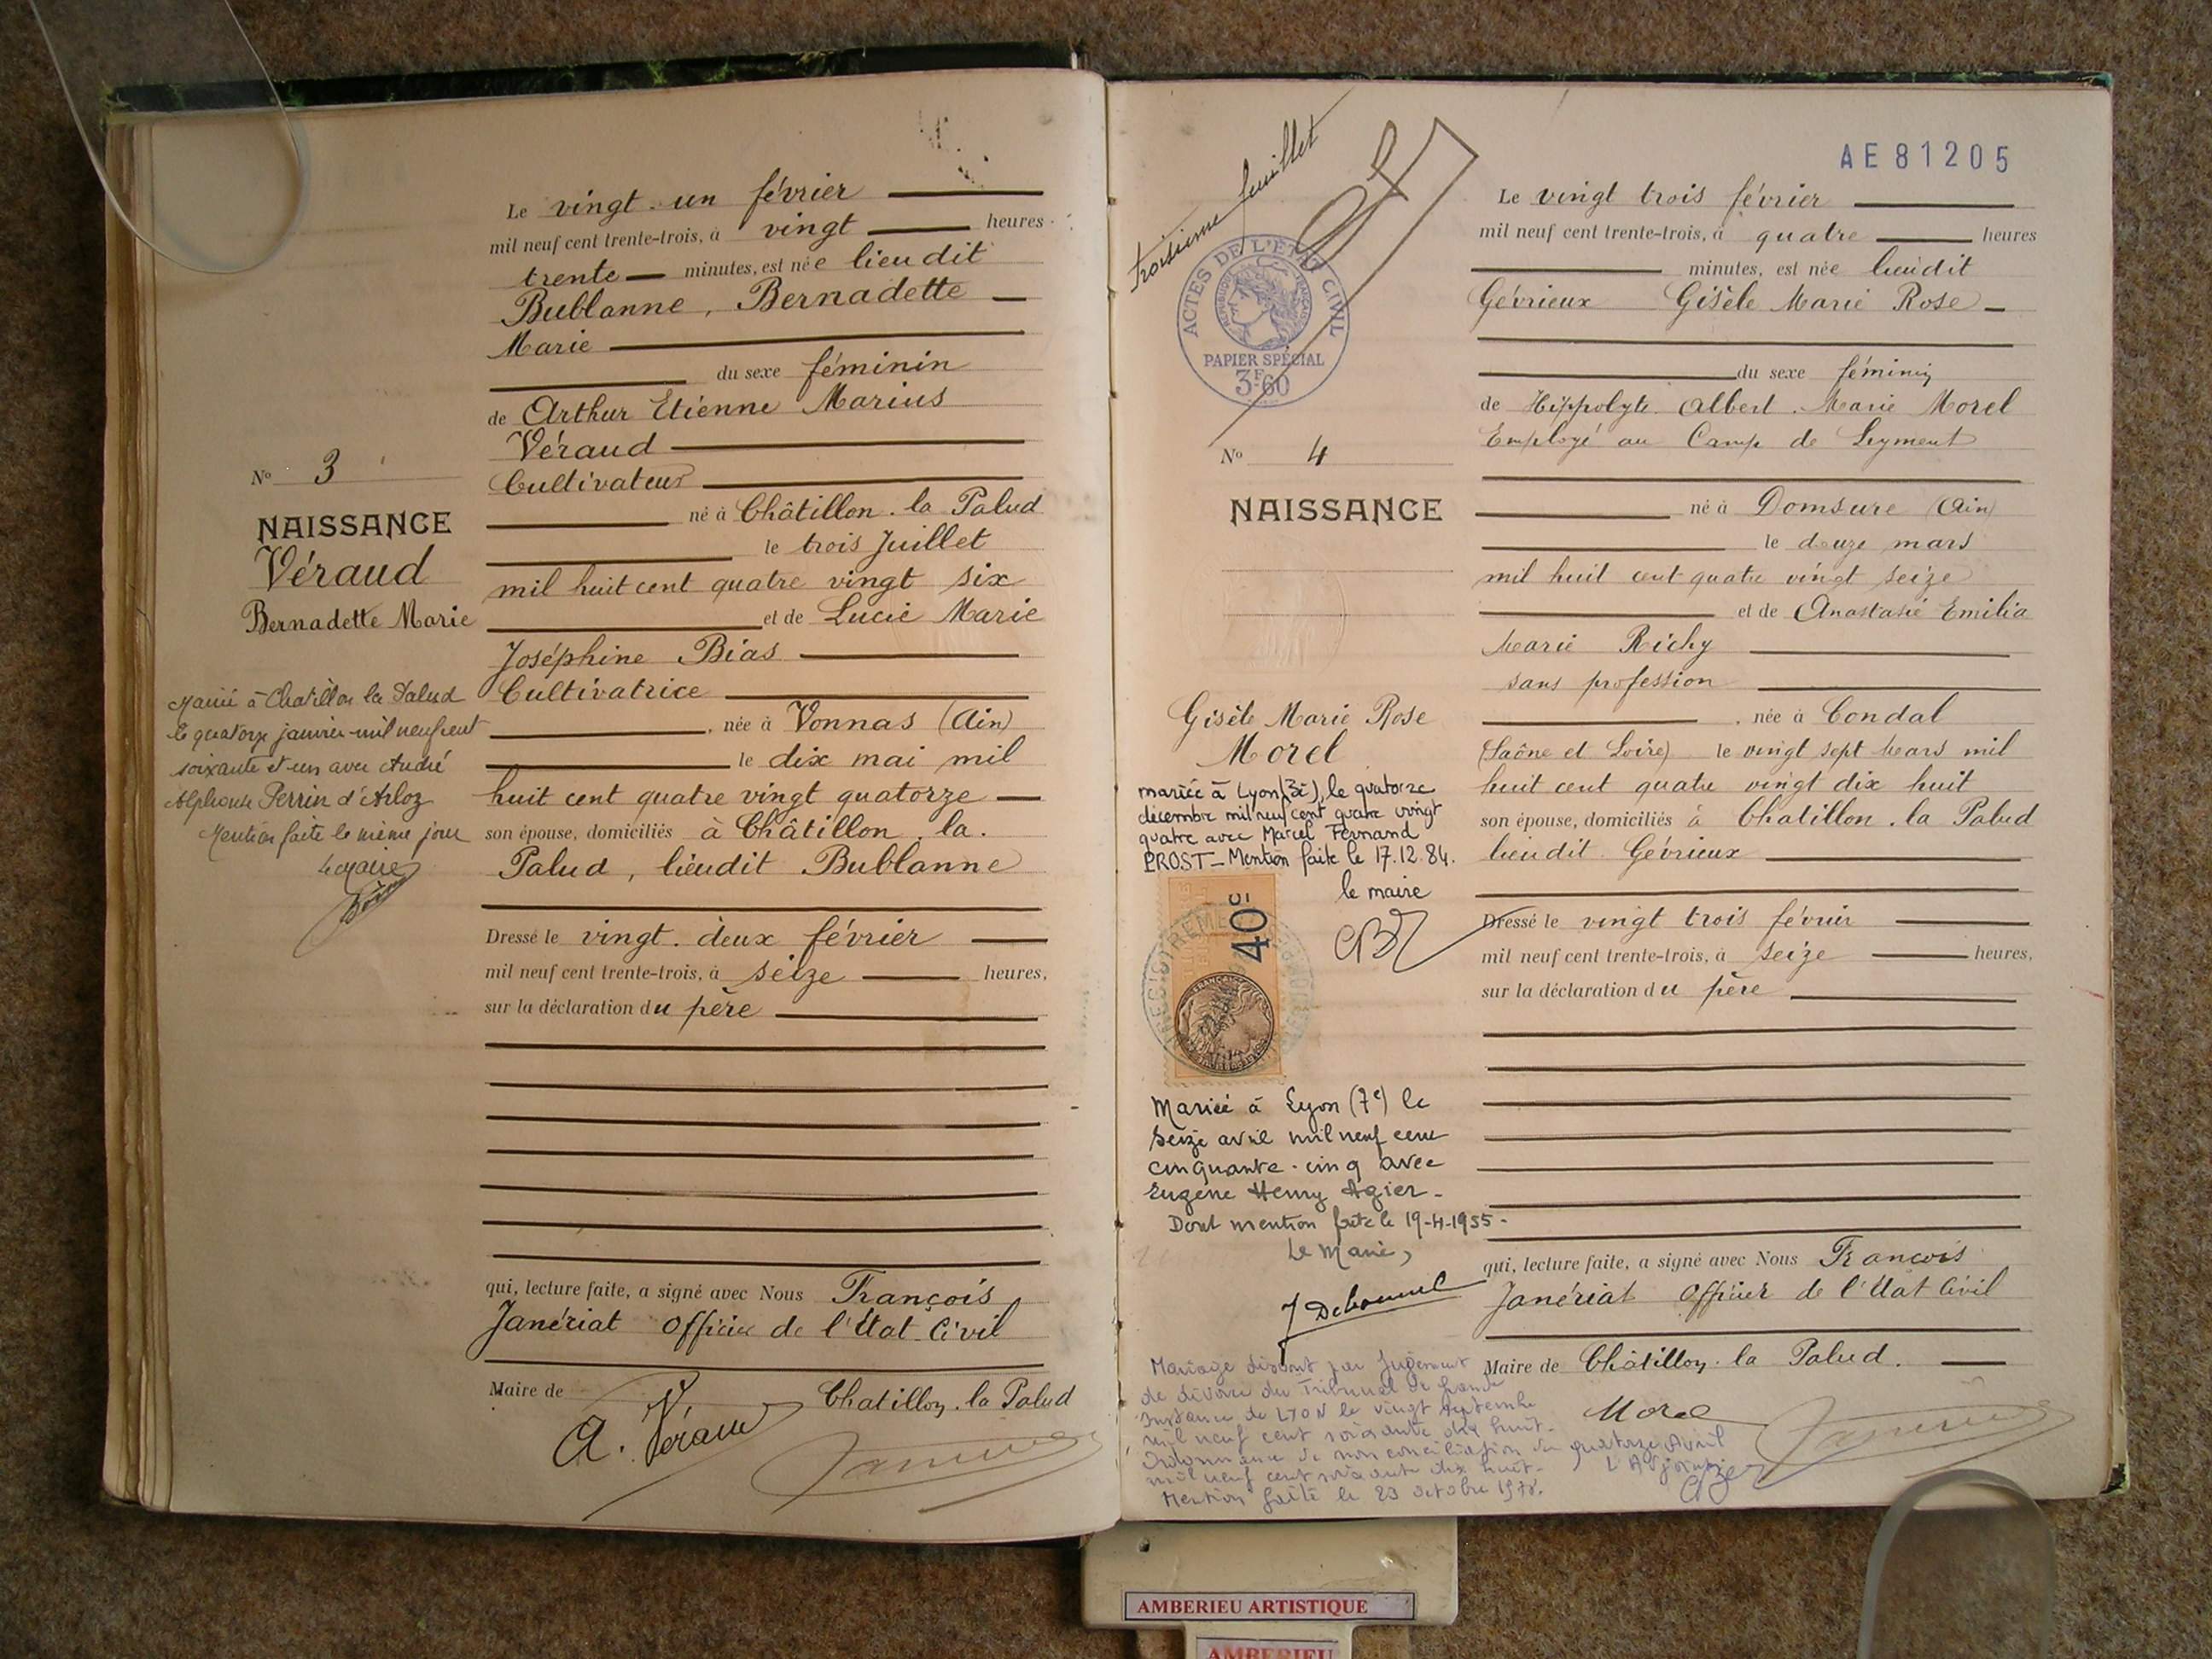 Le vingt-un février
mil neuf cent trente-trois, à vingt heures
trente minutes, est née lieu dit
Bublanne, Bernadette
Marie
du sexe féminin
de Arthur Etienne Marius
Véraud
Cultivateur
né à Châtillon-la Palud
le trois Juillet
mil huit cent quatre vingt six
et de Lucie Marie
Joséphine Bias
Cultivatrice
, née à Vonnas (Ain)
le dix mai mil
huit cent quatre vingt quatorze
son épouse, domiciliés à Châtillon-la-
Palud, lieudit Bublanne
Dressé le vingt-deux février
mil neuf cent trente-trois, à seize heures,
sur la déclaration du père
qui, lecture faite, a signé avec Nous François
Janériat officier de l'Etat Civil
Maire de Chatillon-la Palud
A. Véraud
Nº 3
NAISSANCE
Véraud
Bernadette Marie
Mariée à Chatillon la Palud
le quatorze janvier mil neuf cent
soixante et un avec André
Alphonse Perrin d'Arloz
Mention faite le même jour
Le Maire
troisième feuillet
ACTES DE L'ÉTAT CIVIL
RÉPUBLIQUE FRANÇAISE
PAPIER SPÉCIAL
3F.60
Nº 4
NAISSANCE
Gisèle Marie Rose
Morel
mariée à Lyon (3è), le quatorze
décembre mil neuf cent quatre vingt
quatre avec Marcel Fernand
PROST_ Mention faite le 17.12.84.
le maire
40c
Mariée à Lyon (7e) le
seize avril mil neuf cent
cinquante-cinq avec
Eugène Henry Agier-
Dont mention faite le 19-4-1955-
Le Maire,
Mariage dissout par Jugement
de divorce du Tribunal de Grande
Instance de LYON le vingt septembre
mil neuf cent soixante dix huit-
Ordonnance de non conciliation du quatorze Avril
mil neuf cent soixante dix huit-
Mention faite le 23 octobre 1978.
L'Adjoint
AE81205
Le vingt trois février
mil neuf cent trente-trois, à quatre heures
minutes, est née lieudit
Gévrieux Gisèle Marie Rose
du sexe féminin
de Hippolyte Albert Marie Morel
Employé au Camp de Leyment
né à Domsure (Ain)
le douze mars
mil huit cent quatre vingt seize
et de Anastasie Emilia
Marie Richy
sans profession
, née à Condal
(Saône et Loire) le vingt sept Mars mil
huit cent quatre vingt dix huit
son épouse, domiciliés à Chatillon-la Palud
lieudit Gévrieux
Dressé le vingt trois février
mil neuf cent trente-trois, à seize heures,
sur la déclaration du père
qui, lecture faite, a signé avec Nous François
Janériat officier de l'Etat Civil
Maire de Châtillon-la Palud.
Morel
AMBERIEU ARTISTIQUE
AMBERIEU